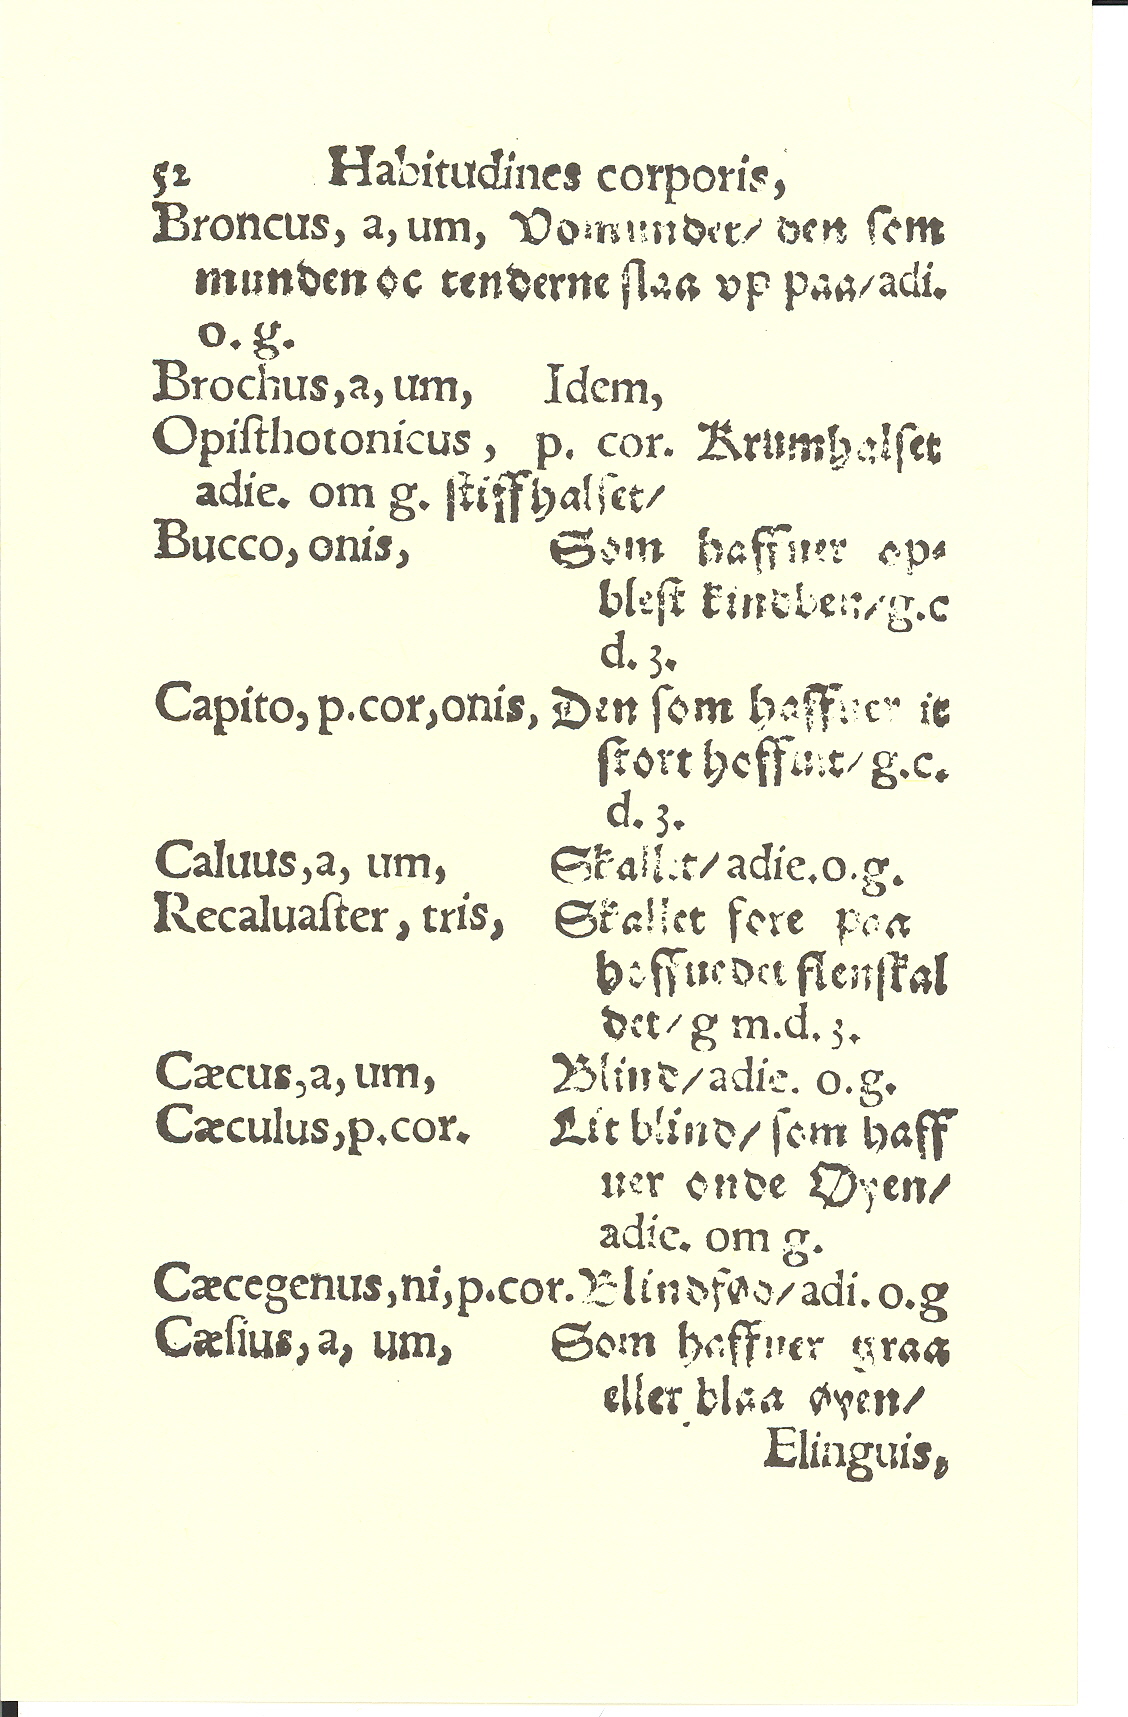 52 Habitudines corporis,
Broncus, a, um, Vomundet/ den som
munden oc tenderne slaa vp paa/ adi.
o. g.
Brochus, a, um, Idem,
Opiſthotonicus, p. cor. Krumhalſet
adie. om g. ſtiffhalſet/
Bucco, onis, Som haffuer op⸗
bleſt kindben/ g.c
d. 3.
Capito, p.cor, onis, Den ſom haffuer it
ſtort hoffuit/ g.c.
d. 3.
Caluus, a, um, Skallet/ adie. o. g.
Recaluaſter, tris, Skallet fore paa
hoffuedet flenſkal
det/ g m. d. 3.
Cæcus, a, um, Blind/ adie. o. g.
Cæculus, p. cor. Lit blind/ ſom haff
uer onde Øyen/
adie. om g.
Cæcegenus, ni, p.cor. Blindfød/ adi. o. g
Cæſius, a, um, Som haffuer graa
eller blaa øyen/
Elinguis,